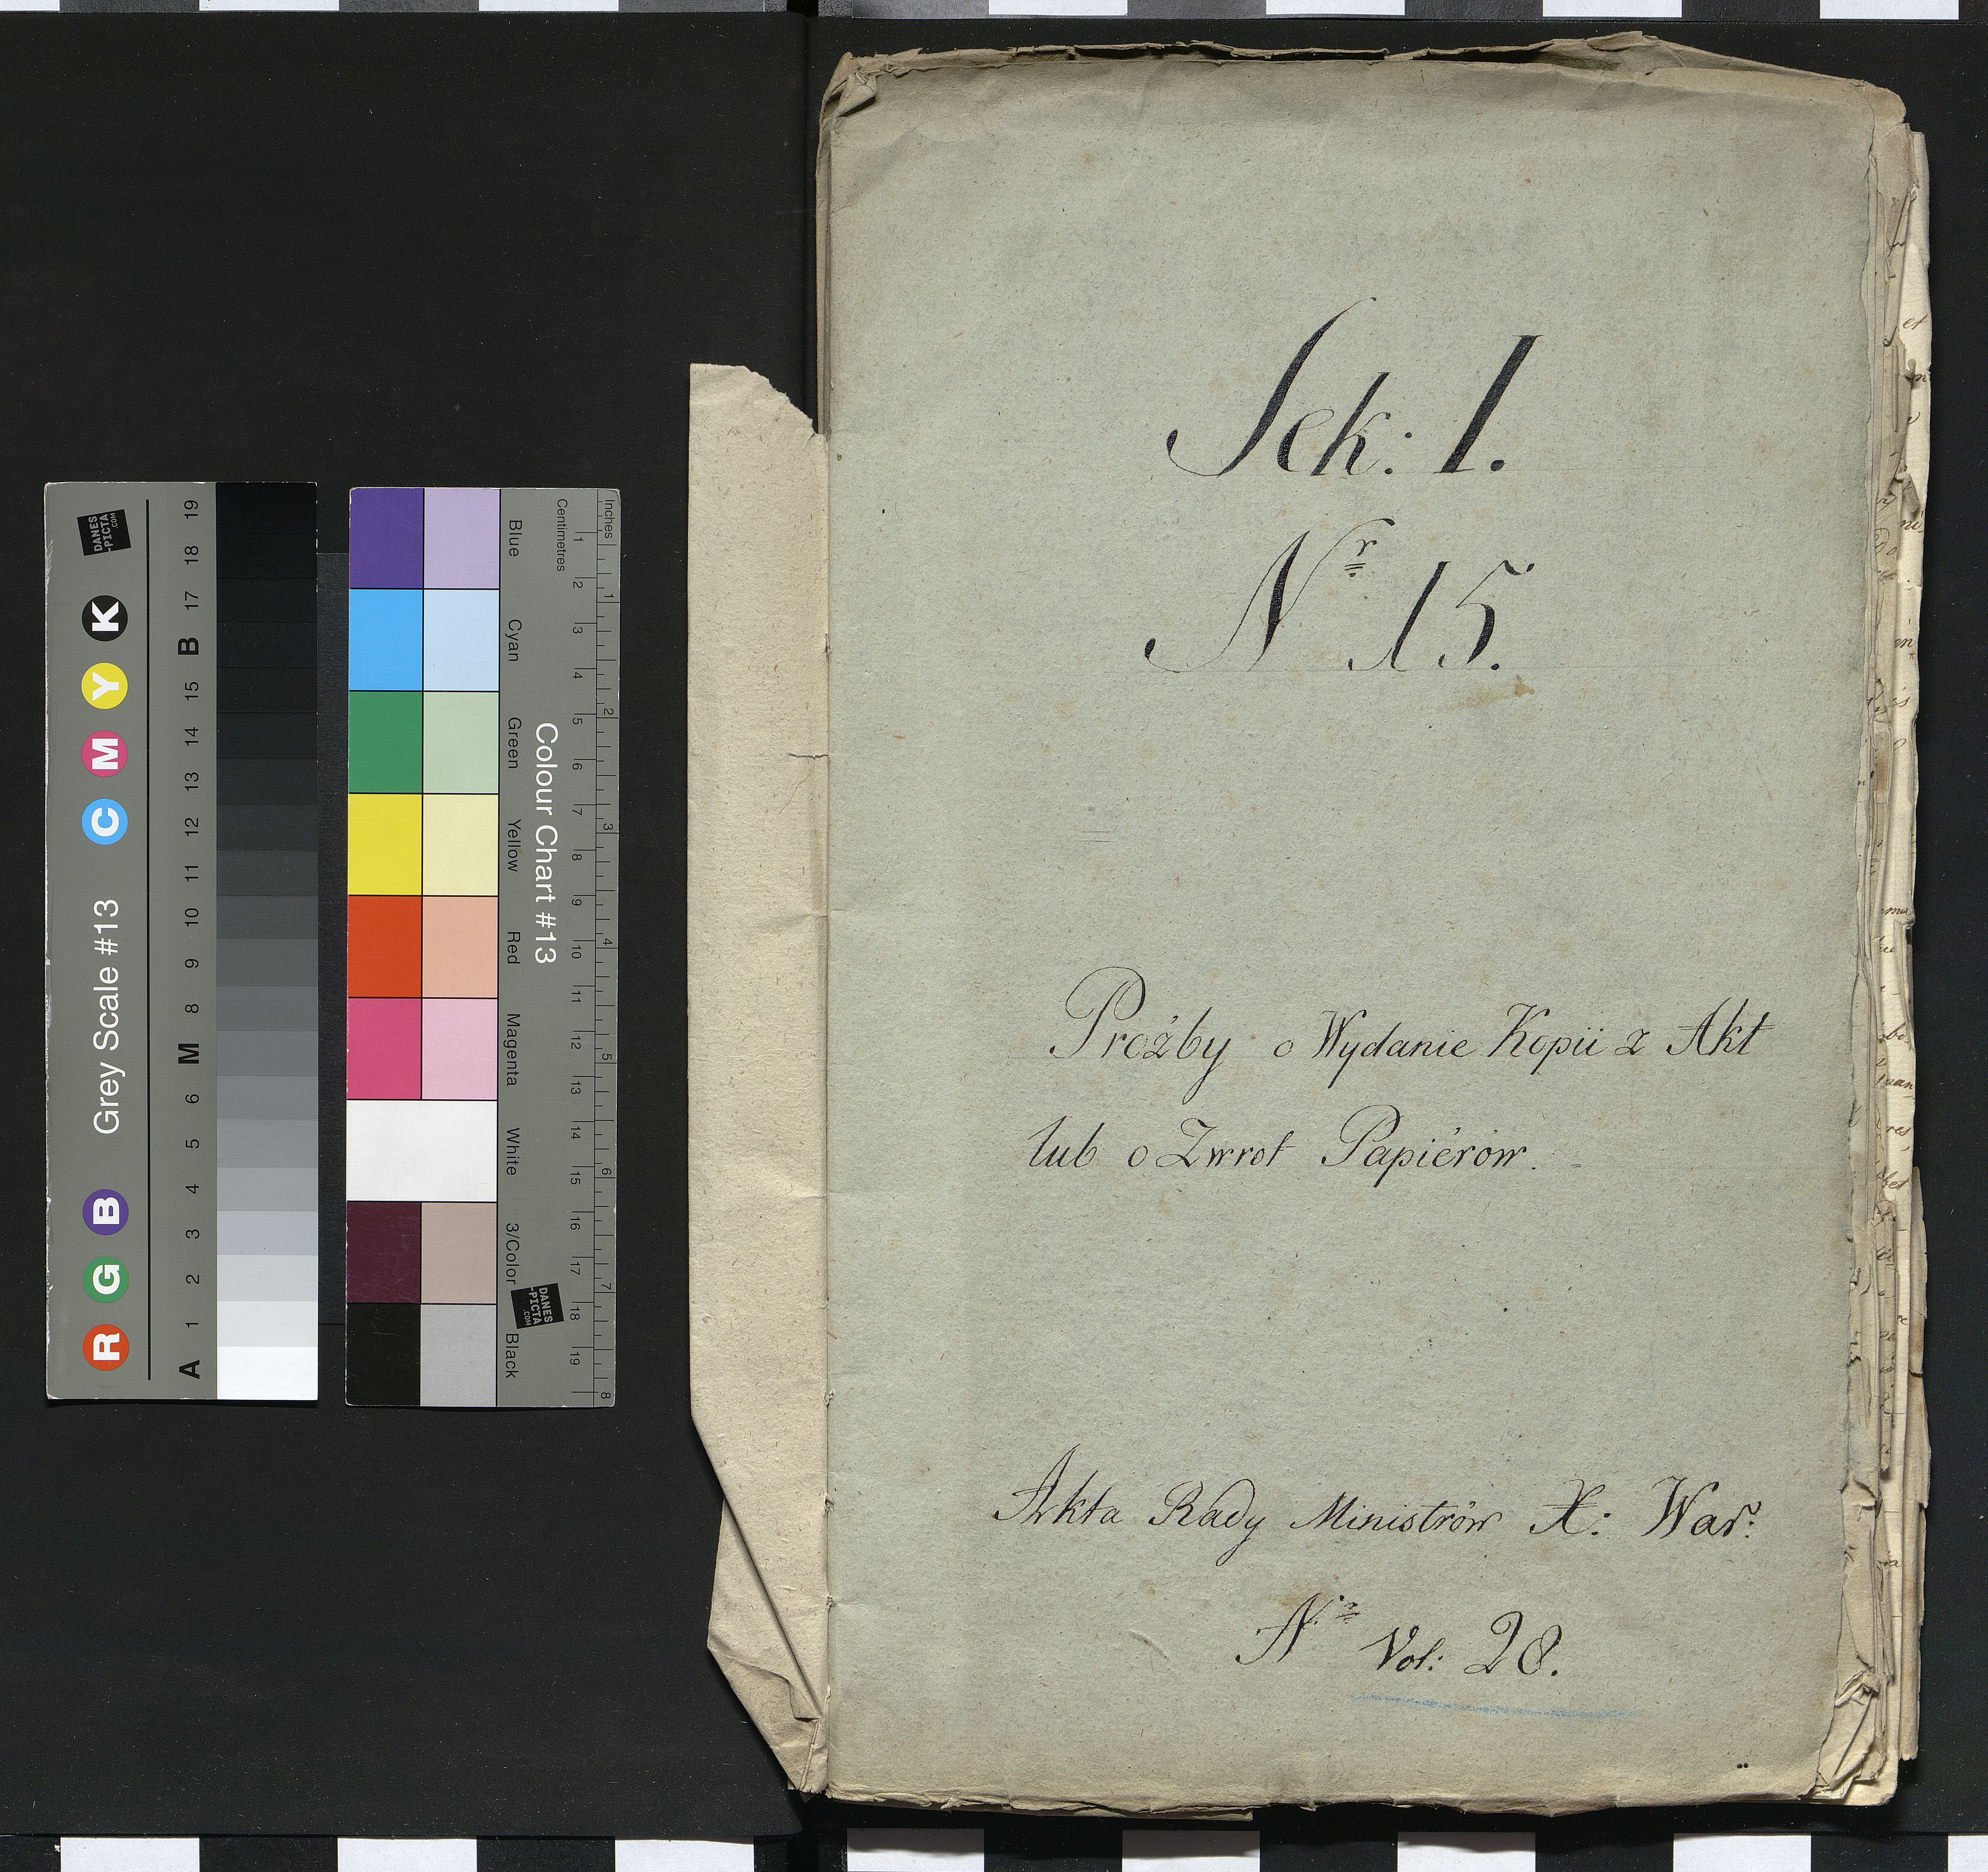 Sek: I.
Nr 15.
Proźby o Wydanie Kopii z Akt
lub o Zwrot Papiérów.
Akta Rady Ministrów X: War:
Nr Vol: 28.
Grey Scale #13
R G B C M Y K
A 1 2 3 4 5 6 M 8 9 10 11 12 13 14 15 B 17 18 19
DANES
-PICTA
.COM
Colour Chart #13
Blue Cyan Green Yellow Red Magenta White 3/Color Black
Inches
1 2 3 4 5 6 7 8
Centimetres
1 2 3 4 5 6 7 8 9 10 11 12 13 14 15 16 17 18 19
DANES
-PICTA
.COM